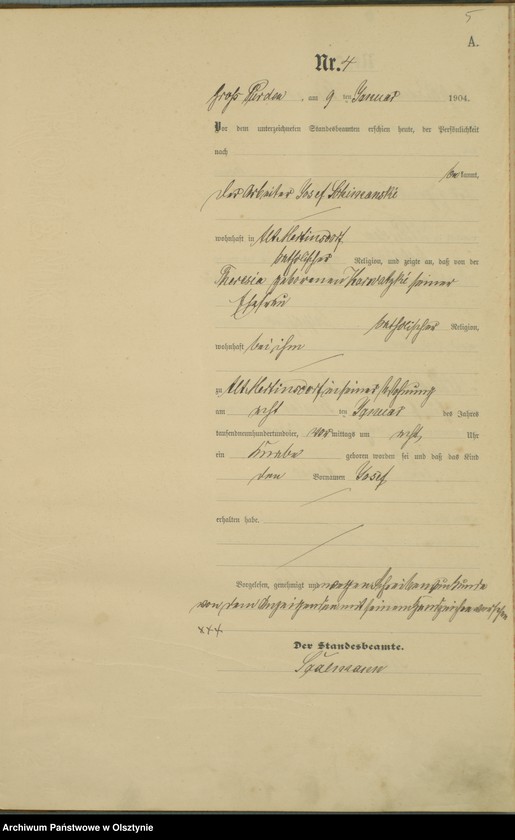 5
A.
Nr. 4
Groß Purden, am 9 ten Januar 1904.
Vor dem unterzeichneten Standesbeamten erschien heute, der Persönlichkeit
nach
bekannt,
der Arbeiter Josef
wohnhaft in Alt Martinsdorf
katholischer Religion, und zeigte an, daß von der
Theresia geborenen seiner
Ehefrau
katholischer Religion,
wohnhaft bei ihm
zu Alt Martinsdorf in seiner Wohnung
am acht ten Januar des Jahres
tausendneunhundertundvier, vormittags um acht Uhr
ein Knabe geboren worden sei und daß das Kind
den Vornamen Josef
erhalten habe.
Vorgelesen, genehmigt und wegen Schreibensunkunde
von dem Anzeigenden mit seinem Handzeichen versehen
xxx
Der Standesbeamte.
Archiwum Państwowe w Olsztynie